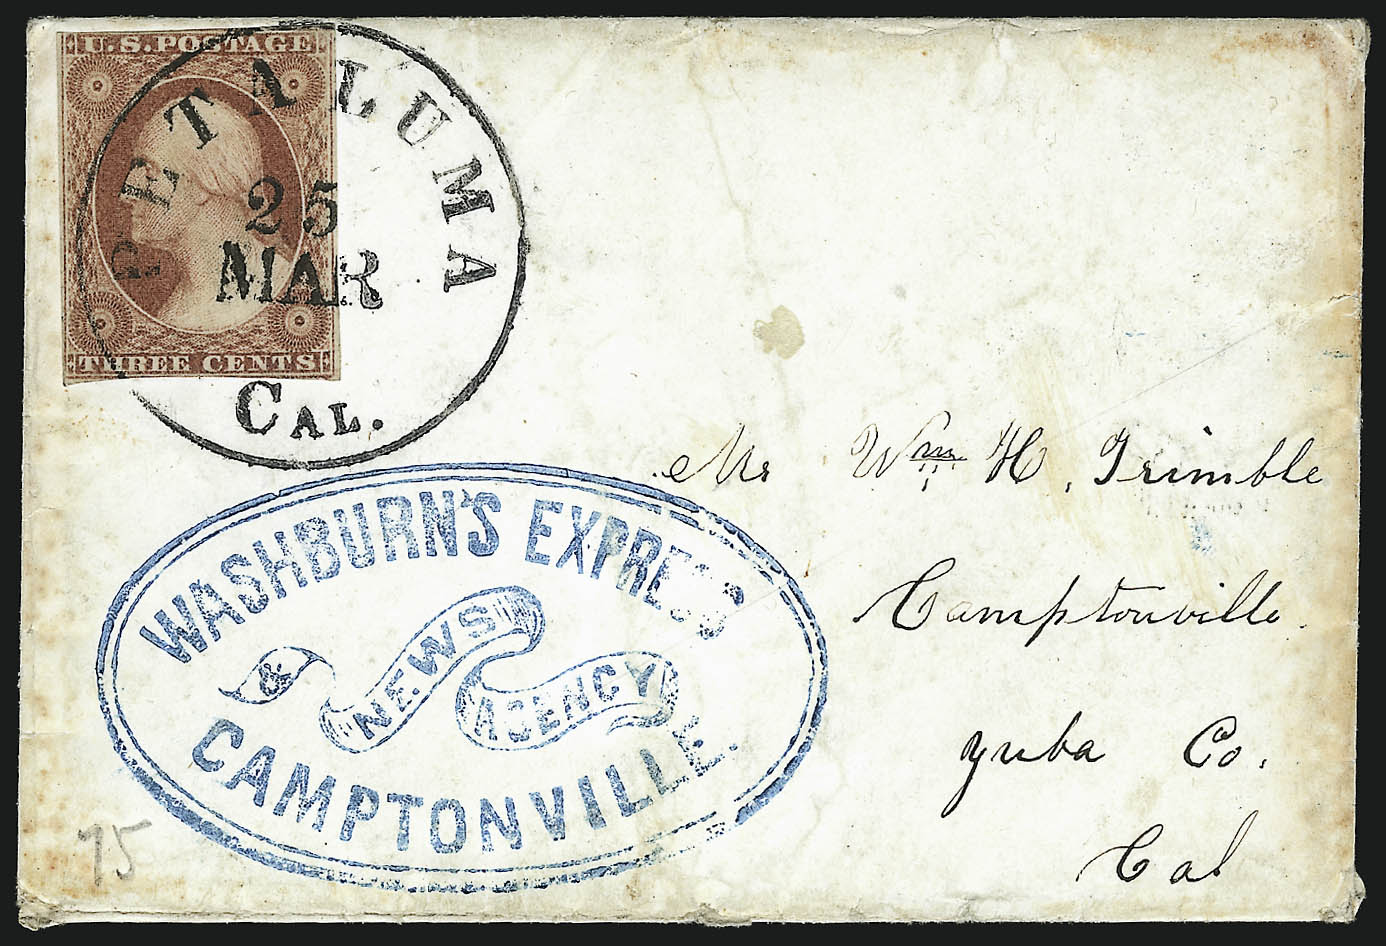 U.S. POSTAGE
PETALUMA
25
MAR
CAL.
THREE CENTS
WASHBURN'S EXPRESS
NEWS
&
AGENCY
CAMPTONVILLE.
Mr Wm H. Trimble
Camptonville
Yuba Co.
Cal
75